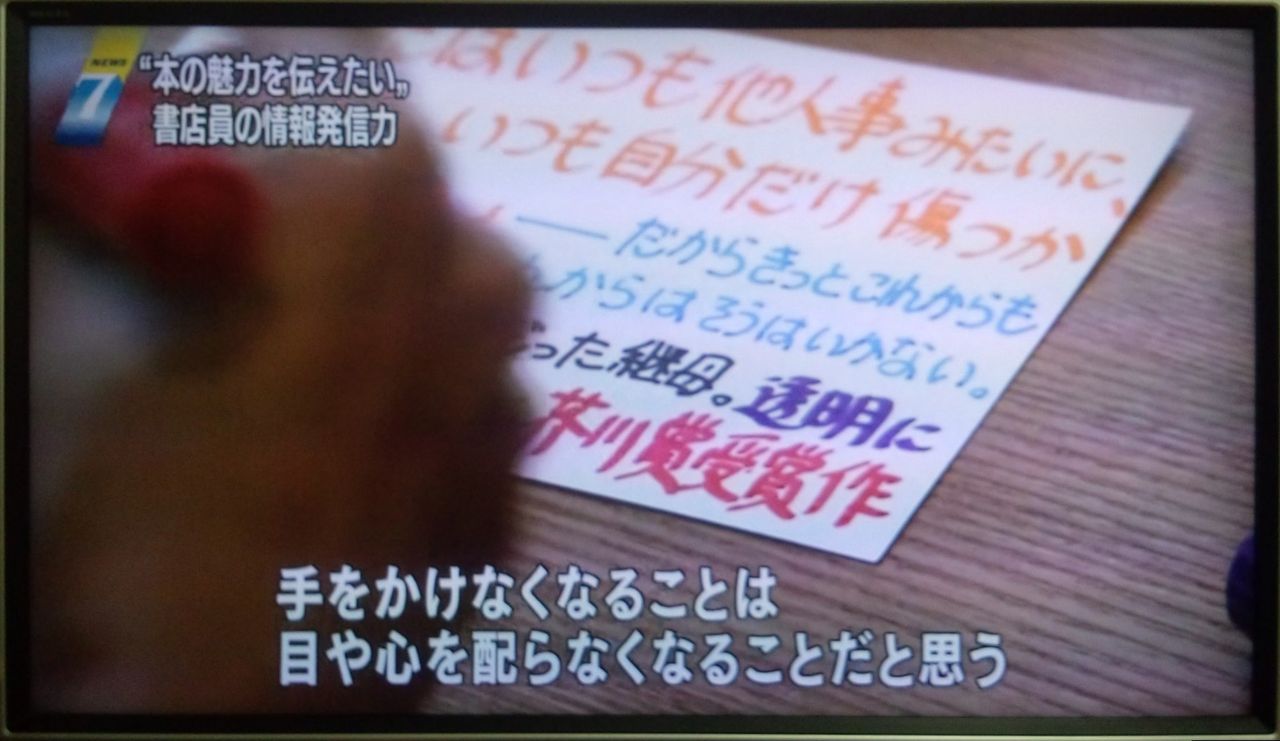 NEWS
7
“本の魅力を伝えたい„
書店員の情報発信力
はいつも他人事みたいに、
いつも自分だけ傷つか
――だからきっとこれからも
からはそうはいかない。
った継母。透明に
芥川賞受賞作
手をかけなくなることは
目や心を配らなくなることだと思う